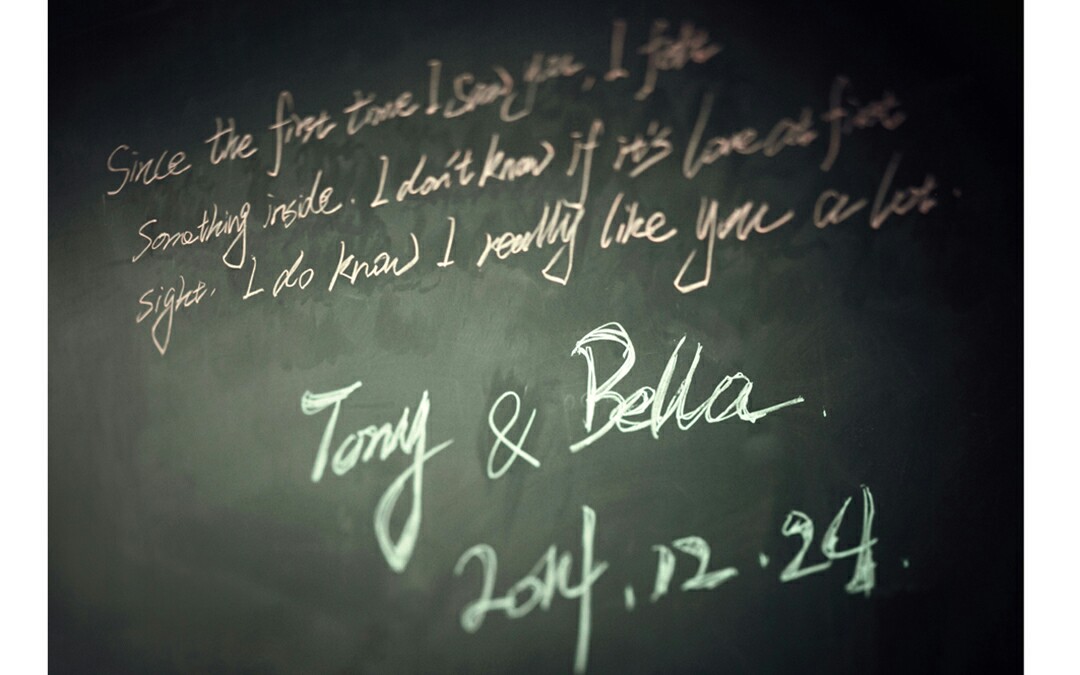 Since the first time I saw you, I felt
Something inside. I don't know if it's love at first
sight. I do know I really like you a lot.
Tony & Bella.
2014.12.24.